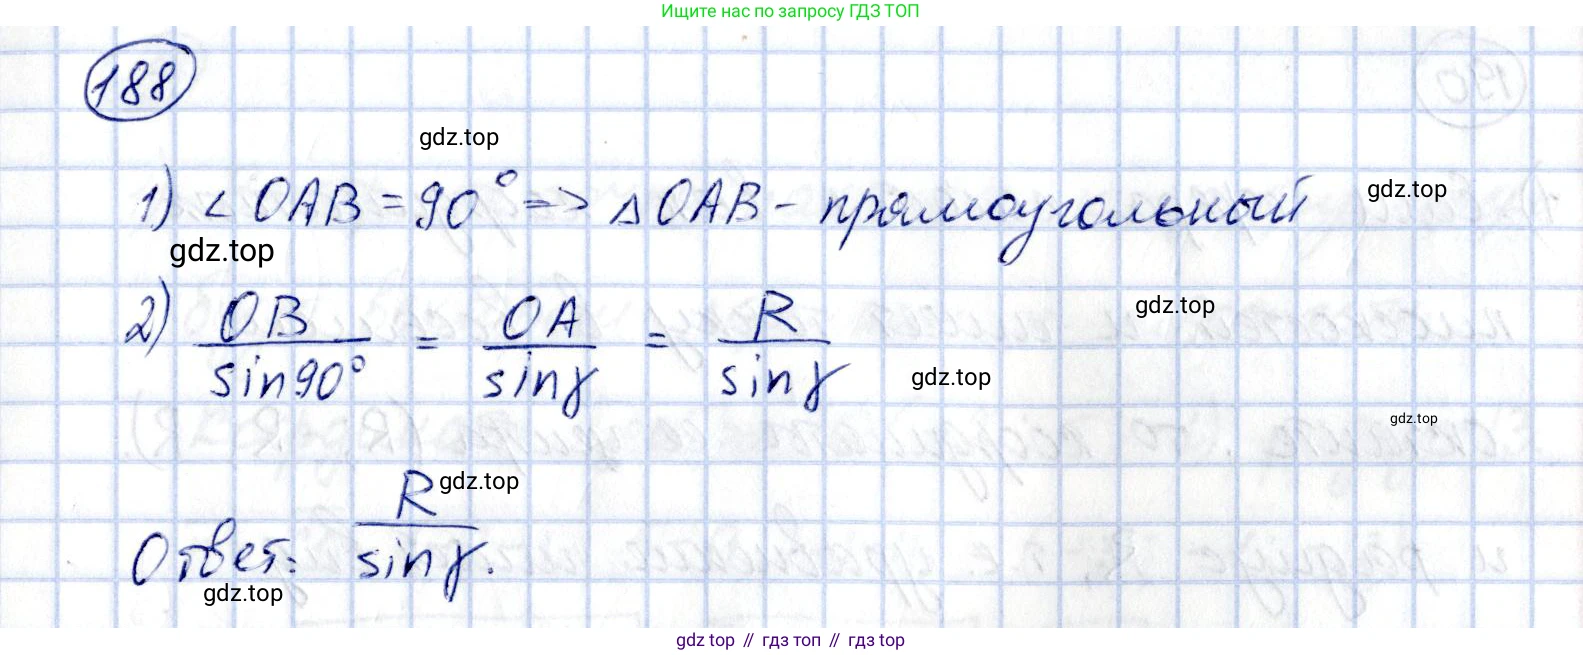 Ищите нас по запросу ГДЗ ТОП
188
gdz.top
1) ∠OAB = 90° => △OAB - прямоугольный
gdz.top
gdz.top
2) OB/sin90° = OA/sinγ = R/sinγ
gdz.top
gdz.top
gdz.top
Ответ: R/sinγ.
gdz.top
gdz.top
gdz top // гдз топ // гдз top